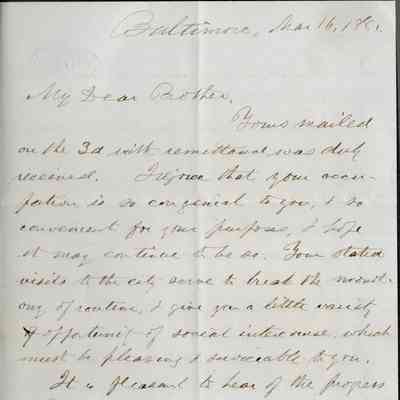 Baltimore, Mar 16, 18
My Dear Brother,
Yours mailed
on the 3d with remittance was duly
received. I rejoice that your occu-
pation is so congenial to you, & so
convenient for your purposes, & hope
it may continue to be so. Your stated
visits to the city serve to break the monot-
ony of routine, & give you a little variety
& opportunity of social intercourse, which
must be pleasing & serviceable to you.
It is pleasant to hear of the progress